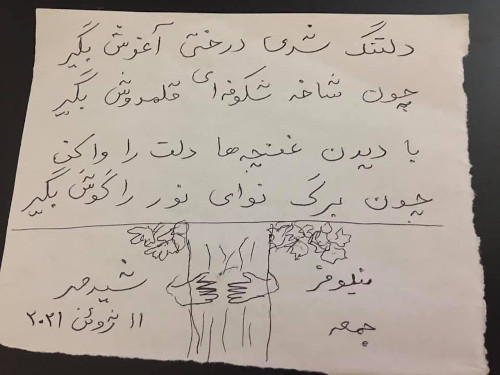 دلتنگ شدی درختی آغوش بگیر
چون شاخه شکوفه‌ای قلمدوش بگیر
با دیدن غنچه‌ها دلت را وا کن
چون برگ نوای نور را گوش بگیر
نیلوفر شیدمهر
جمعه ۱۱ ژوئن ۲۰۲۱